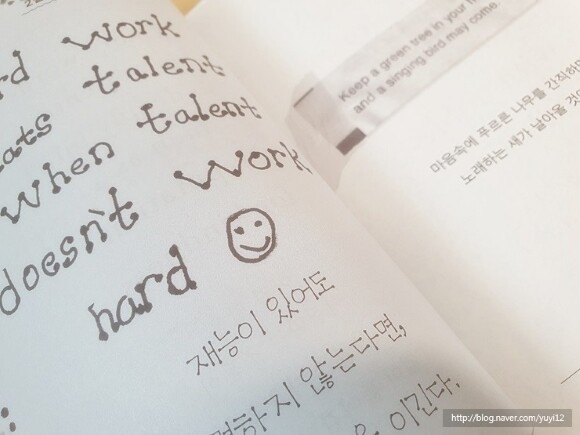 work
talent
when talent
doesn't work
hard
재능이 있어도
않는다면,
이긴다.
Keep a green tree in your
and a singing bird may come.
마음속에 푸르른 나무를 간직하면
노래하는 새가 날아올
http://blog.naver.com/yuyi12